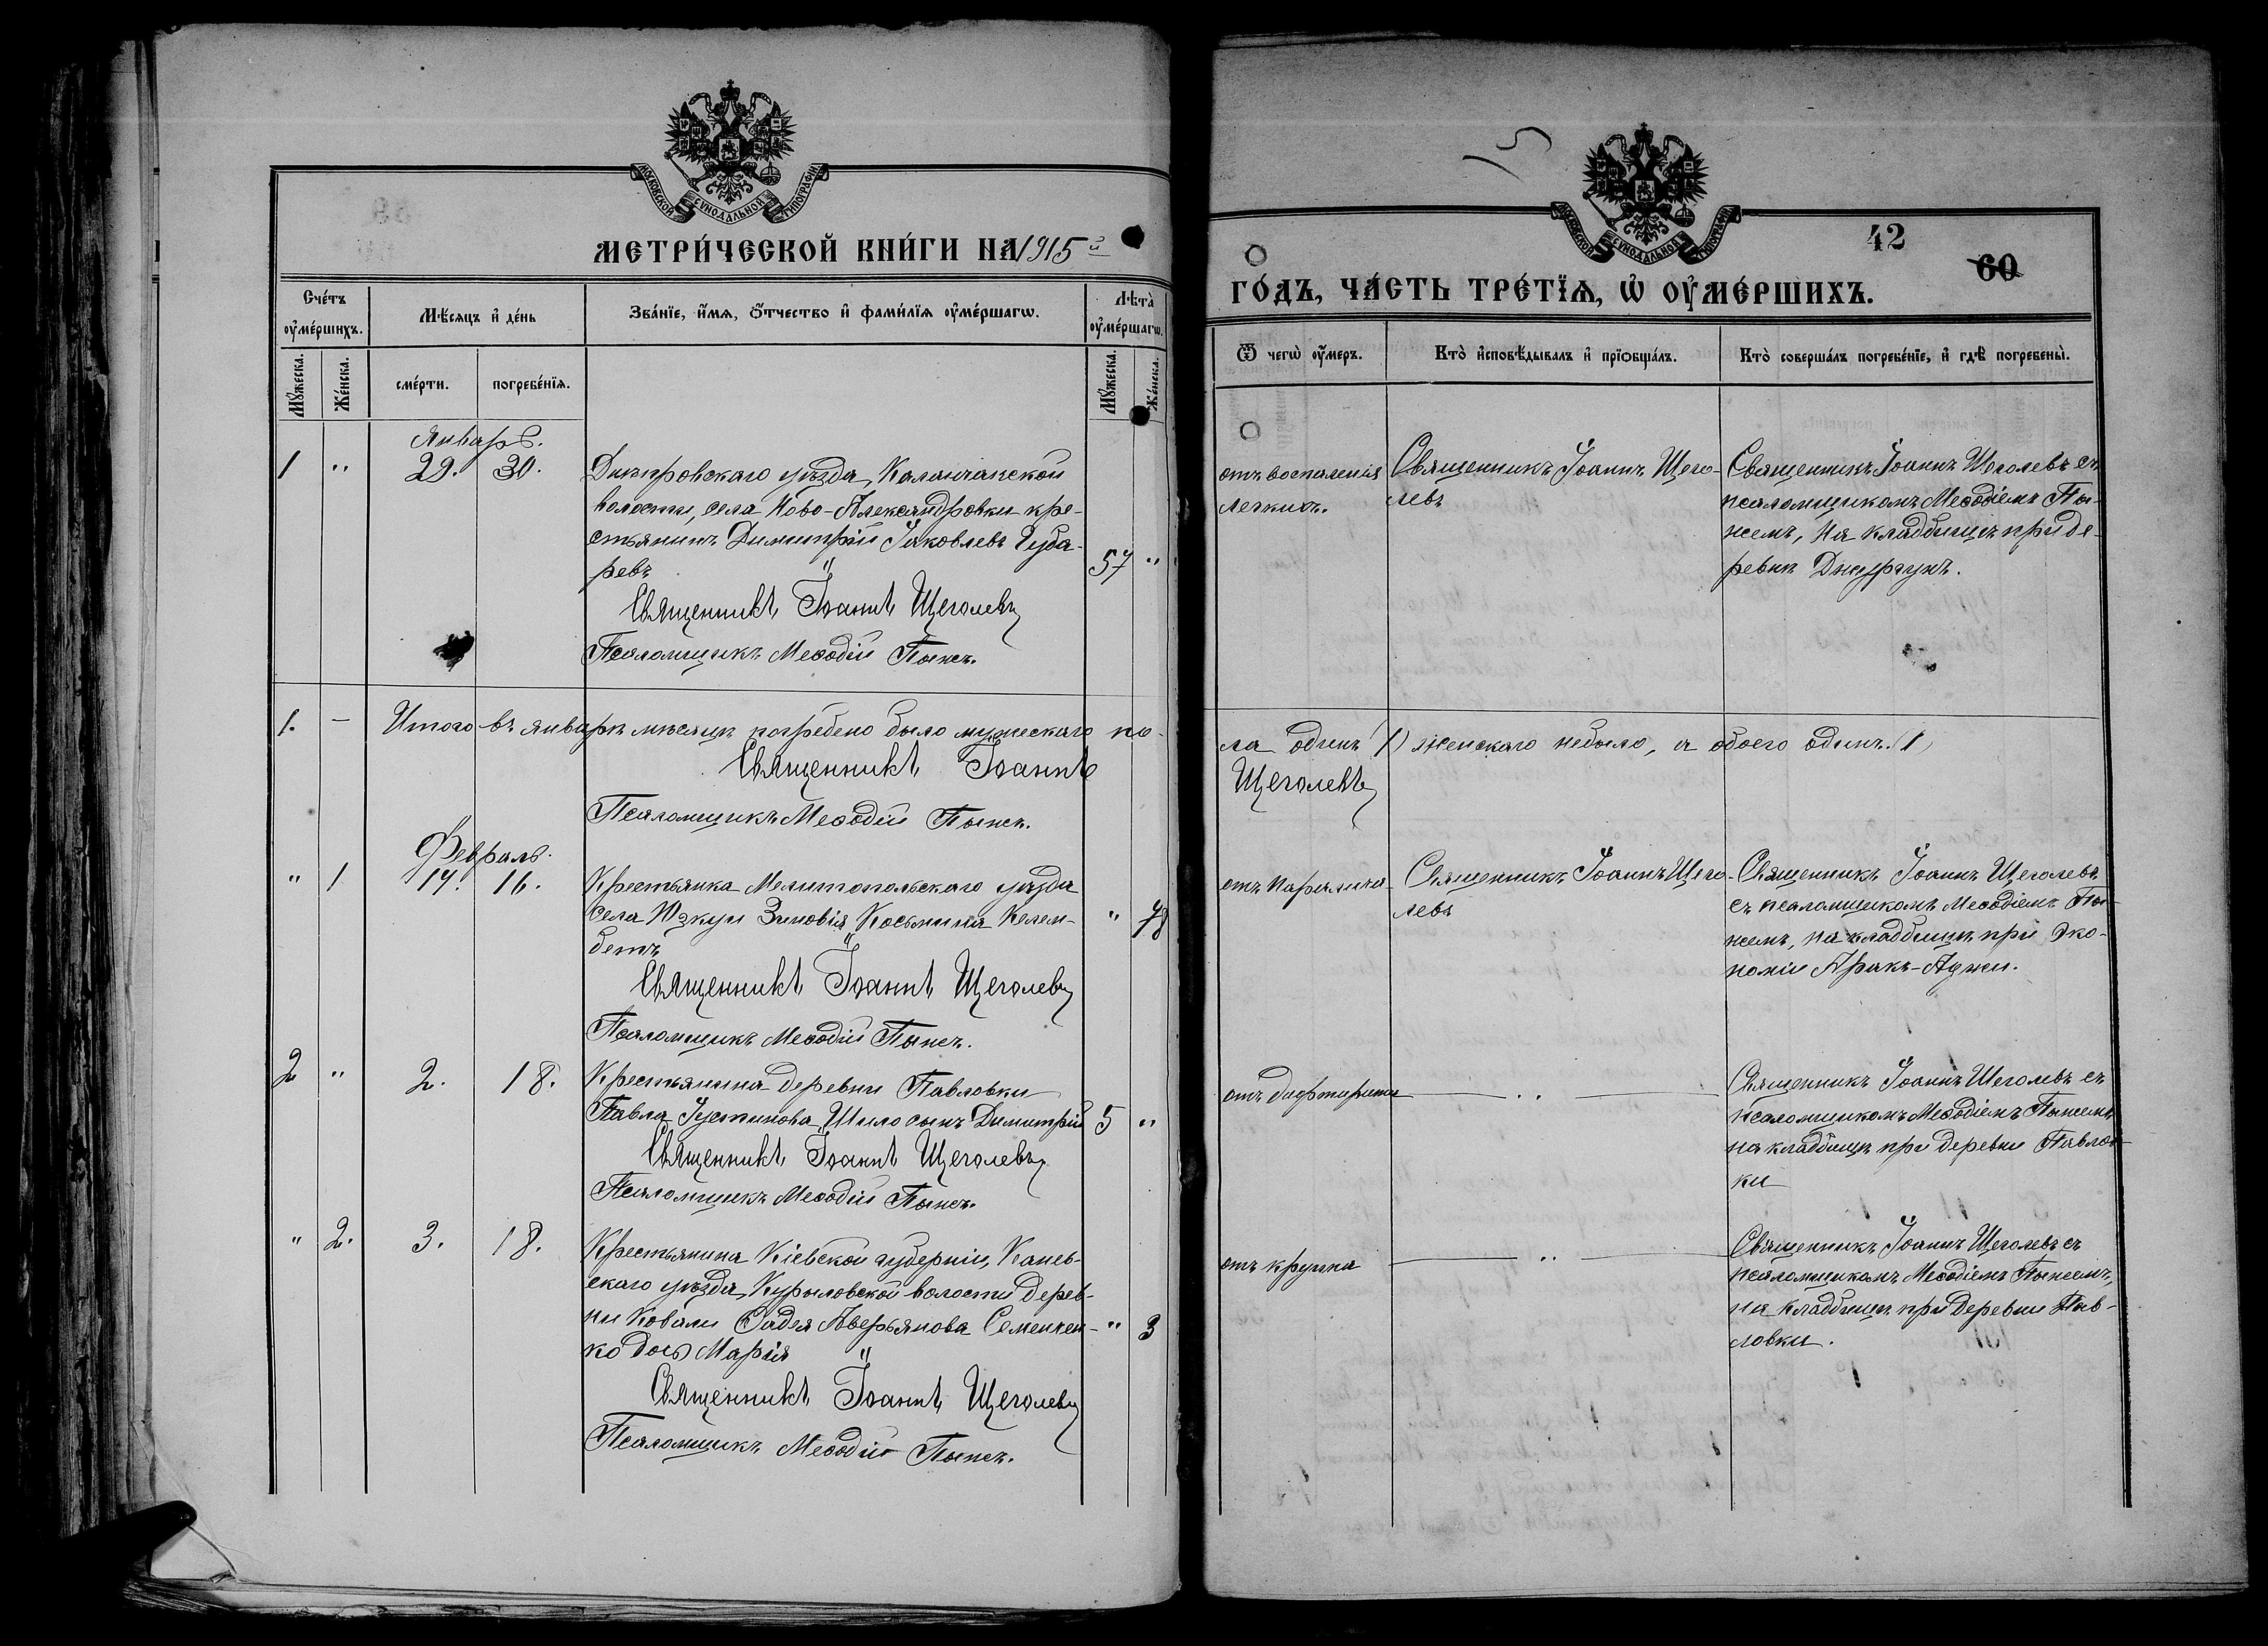 МОСКОВСКОЙ СѴНОДАЛЬНОЙ ТИПОГРАФІИ
МЕТРИ́ЧЕСКОЙ КНИ́ГИ НА 1915 й
Сче́тъ ᲂу҆ме́ршихъ.
Мꙋ́жеска.
Же́нска.
Мѣ́сяцъ и҆ де́нь
сме́рти.
погребе́нїя.
Зва́нїе, и҆́мя, ѻ҆́тчество и҆ фами́лїя ᲂу҆ме́ршагѡ.
Лѣта̀ ᲂу҆ме́ршагѡ.
Мꙋ́жеска.
Же́нска.
Январь.
1 " 29. 30.
Днѣпровскаго уѣзда, Каланчакской
волости, села Ново-Александровки кре-
стьянинъ Димитрій Іаковлевъ Губа-
ревъ
57 "
Священникъ Іоаннъ Щеголевъ
Псаломщикъ Меѳодій Пынзъ.
1. — Итого въ январѣ мѣсяцѣ погребено было мужескаго по-
Священникъ Іоаннъ
Псаломщикъ Меѳодій Пынзъ.
Февраль.
" 1 14. 16.
Крестьянка Мелитопольскаго уѣзда
села Юзкуи Зиновія Космина Келем-
бетъ
" 78
Священникъ Іоаннъ Щеголевъ
Псаломщикъ Меѳодій Пынзъ.
2 " 2. 18.
Крестьянина деревни Павловки
Павла Іустинова Шило сынъ Димитрій
5 "
Священникъ Іоаннъ Щеголевъ
Псаломщикъ Меѳодій Пынзъ.
" 2. 3. 18.
Крестьянина Кіевской губерніи, Канев-
скаго уѣзда, Курыловской волости дерев-
ни Ковали Фадея Аверьянова Семенчен-
ко дочь Марія
" 3
Священникъ Іоаннъ Щеголевъ
Псаломщикъ Меѳодій Пынзъ.
МОСКОВСКОЙ СѴНОДАЛЬНОЙ ТИПОГРАФІИ
42
60
ГО́ДЪ, ЧА́СТЬ ТРЕ́ТЇѦ, Ѡ҆ ОУ҆МЕ́РШИХЪ.
Ѿ чегѡ̀ ᲂу҆́меръ.
Кто̀ и҆сповѣ́дывалъ и҆ прїѻбща́лъ.
Кто̀ соверша́лъ погребе́нїе, и҆ гдѣ̀ погребены̀.
отъ воспаленія
легкихъ.
Священникъ Іоаннъ Щего-
левъ
Священникъ Іоаннъ Щеголевъ съ
псаломщикомъ Меѳодіемъ Пы-
нземъ, На кладбищѣ при де-
ревнѣ Джурчукъ.
ла одинъ (1) женскаго небыло, а обоего одинъ. (1)
Щеголевъ
отъ паралича
Священникъ Іоаннъ Щего-
левъ
Священникъ Іоаннъ Щеголевъ
съ псаломщикомъ Меѳодіемъ Пы-
нземъ, на кладбищѣ при Эко-
номіи Аракъ-Аджи.
отъ дифтерита — " —
Священникъ Іоаннъ Щеголевъ съ
псаломщикомъ Меѳодіемъ Пынземъ
на кладбищѣ при деревни Павлов-
ки
отъ крупа — " —
Священникъ Іоаннъ Щеголевъ съ
псаломщикомъ Меѳодіемъ Пынземъ,
на кладбищѣ при деревни Пав-
ловки.